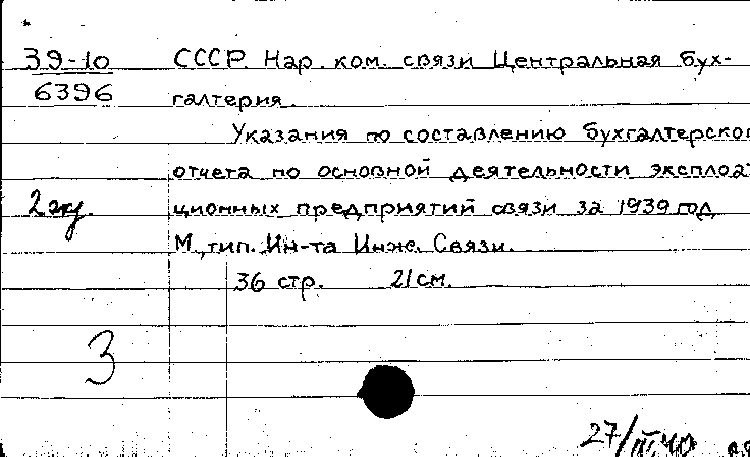 39-10 СССР. Нар. ком. связи Центральная бух-
6396 галтерия.
Указания по составлению бухгалтерског
отчета по основной деятельности эксплоат
2 экз. ционных предприятий связи за 1939 год
М., тип. Ин-та Инж. Связи.
36 стр. 21 см.
3
27/IV 40